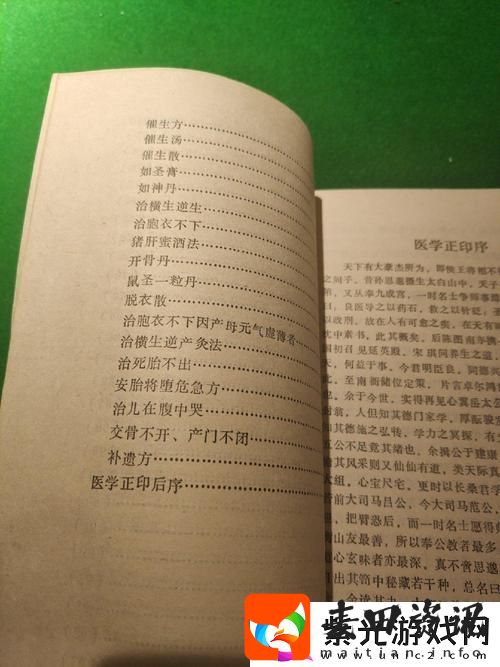 催生方
催生汤
催生散
如圣膏
如神丹
治横生逆生
治胞衣不下
猪肝蜜酒法
开骨丹
鼠圣一粒丹
脱衣散
治胞衣不下因产母元气虚薄者
治横生逆产灸法
治死胎不出
安胎将堕危急方
治儿在腹中哭
交骨不开、产门不闭
补遗方
医学正印后序
医学正印序
天下有大豪杰所为，即侯王将相不
之间乎。昔孙思邈摄生太白山中，天子
，又从幸九成宫，一时名士争师事
，良医导之以药石，救之以针砭；圣
以政刑。故在人有可愈之疾，在天有
忱中素书，此其概矣。后陈图南
国初召见延英殿，宋琪问养生之道
天，何益于事。今君明臣良，同德
，至南衙储位定策，片言卓尔
也，余于今世，实得再见心冀岳太公
封翁，人但知其德门家学，厚酝骏
知其德施之弘特，学力之冥探，有
五公不足竟其绪也。余揖公于建康
其风采则又仙仙有道，类天际真
大组，心宝尺宅，更时以长桑君
前大司马吕公，今大司马范公，
，把臂恐后，而一时名士愿得师
山友最善，所以奉公教者最多
心玄昧者亦最深，真不啻思邈
出其笥中秘藏若干种，总名曰
紫光游戏网
www.unc2.com
maitian.info